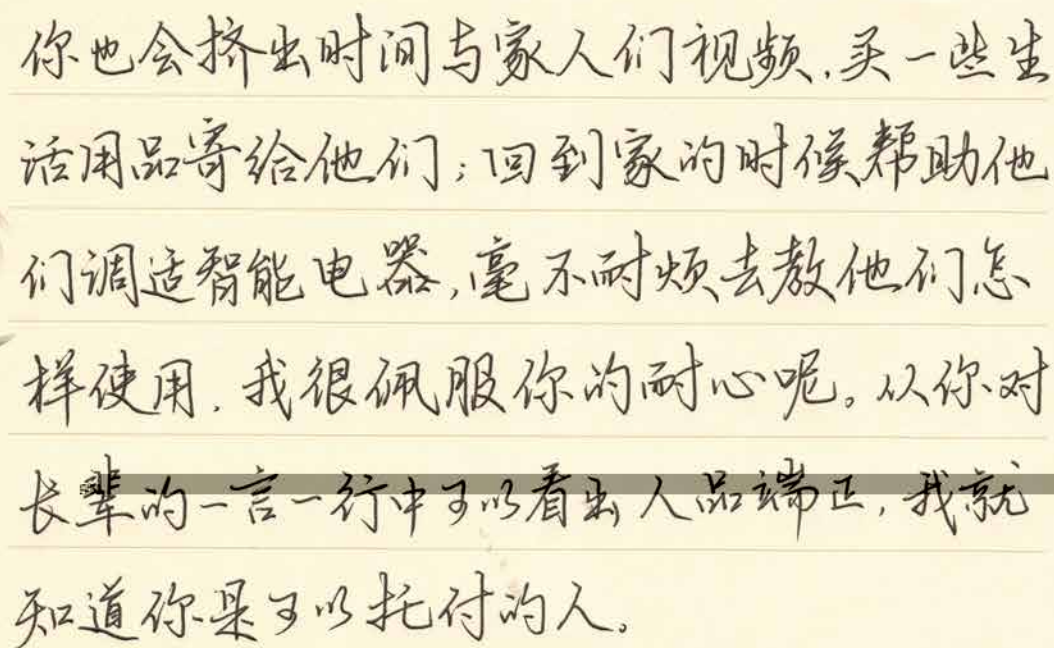 你也会挤出时间与家人们视频,买一些生
活用品寄给他们;回到家的时候帮助他
们调适智能电器,毫不耐烦去教他们怎
样使用,我很佩服你的耐心呢。从你对
长辈的一言一行中可以看出人品端正,我就
知道你是可以托付的人。